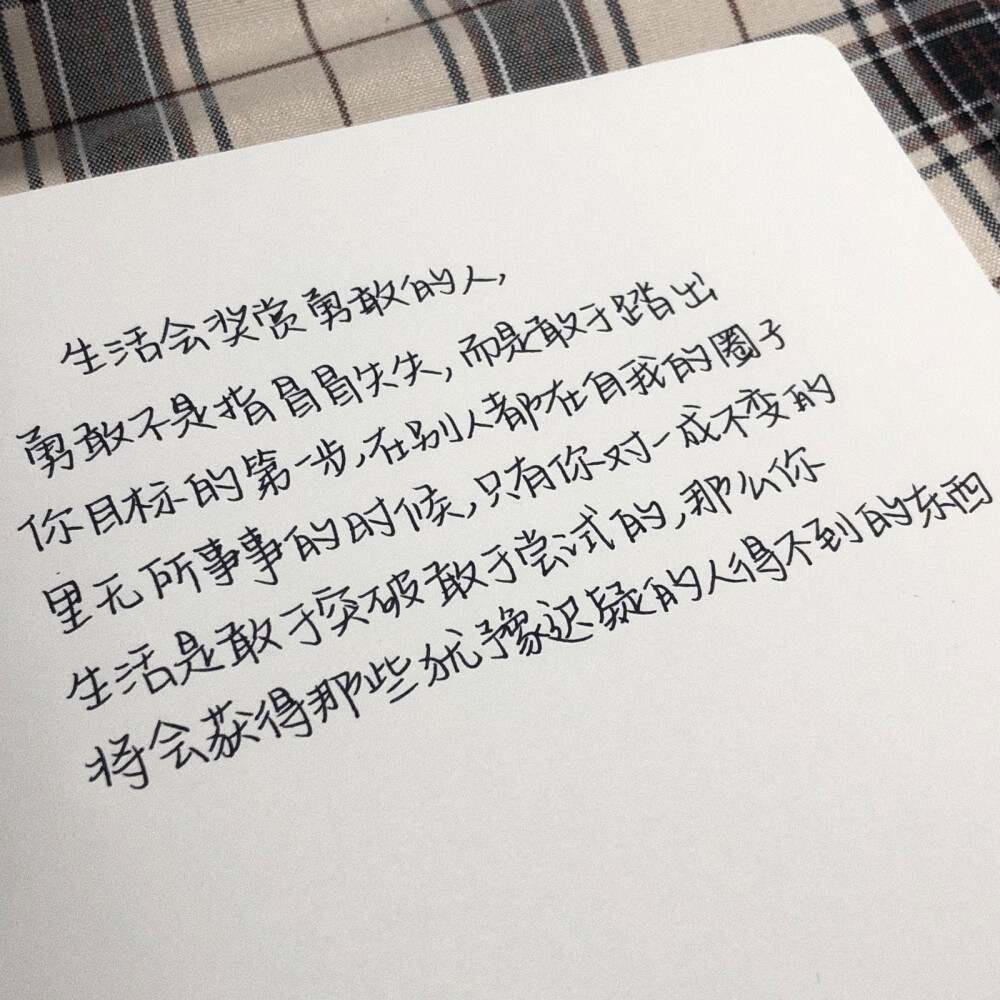 生活会奖赏勇敢的人,
勇敢不是指冒冒失失,而是敢于踏出
你目标的第一步,在别人都在自我的圈子
里无所事事的时候,只有你对一成不变的
生活是敢于突破敢于尝试的,那么你
将会获得那些犹予豫迟疑的人得不到的东西